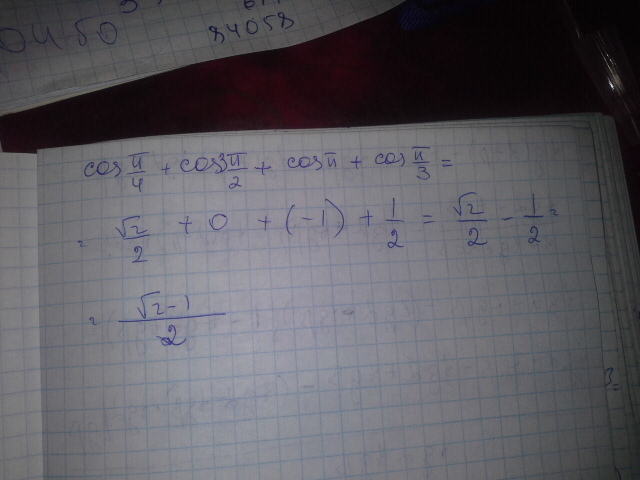 84058
cos π/4 + cos 3π/2 + cos π + cos π/3 =
= √2/2 + 0 + (-1) + 1/2 = √2/2 - 1/2 =
= √2-1/2